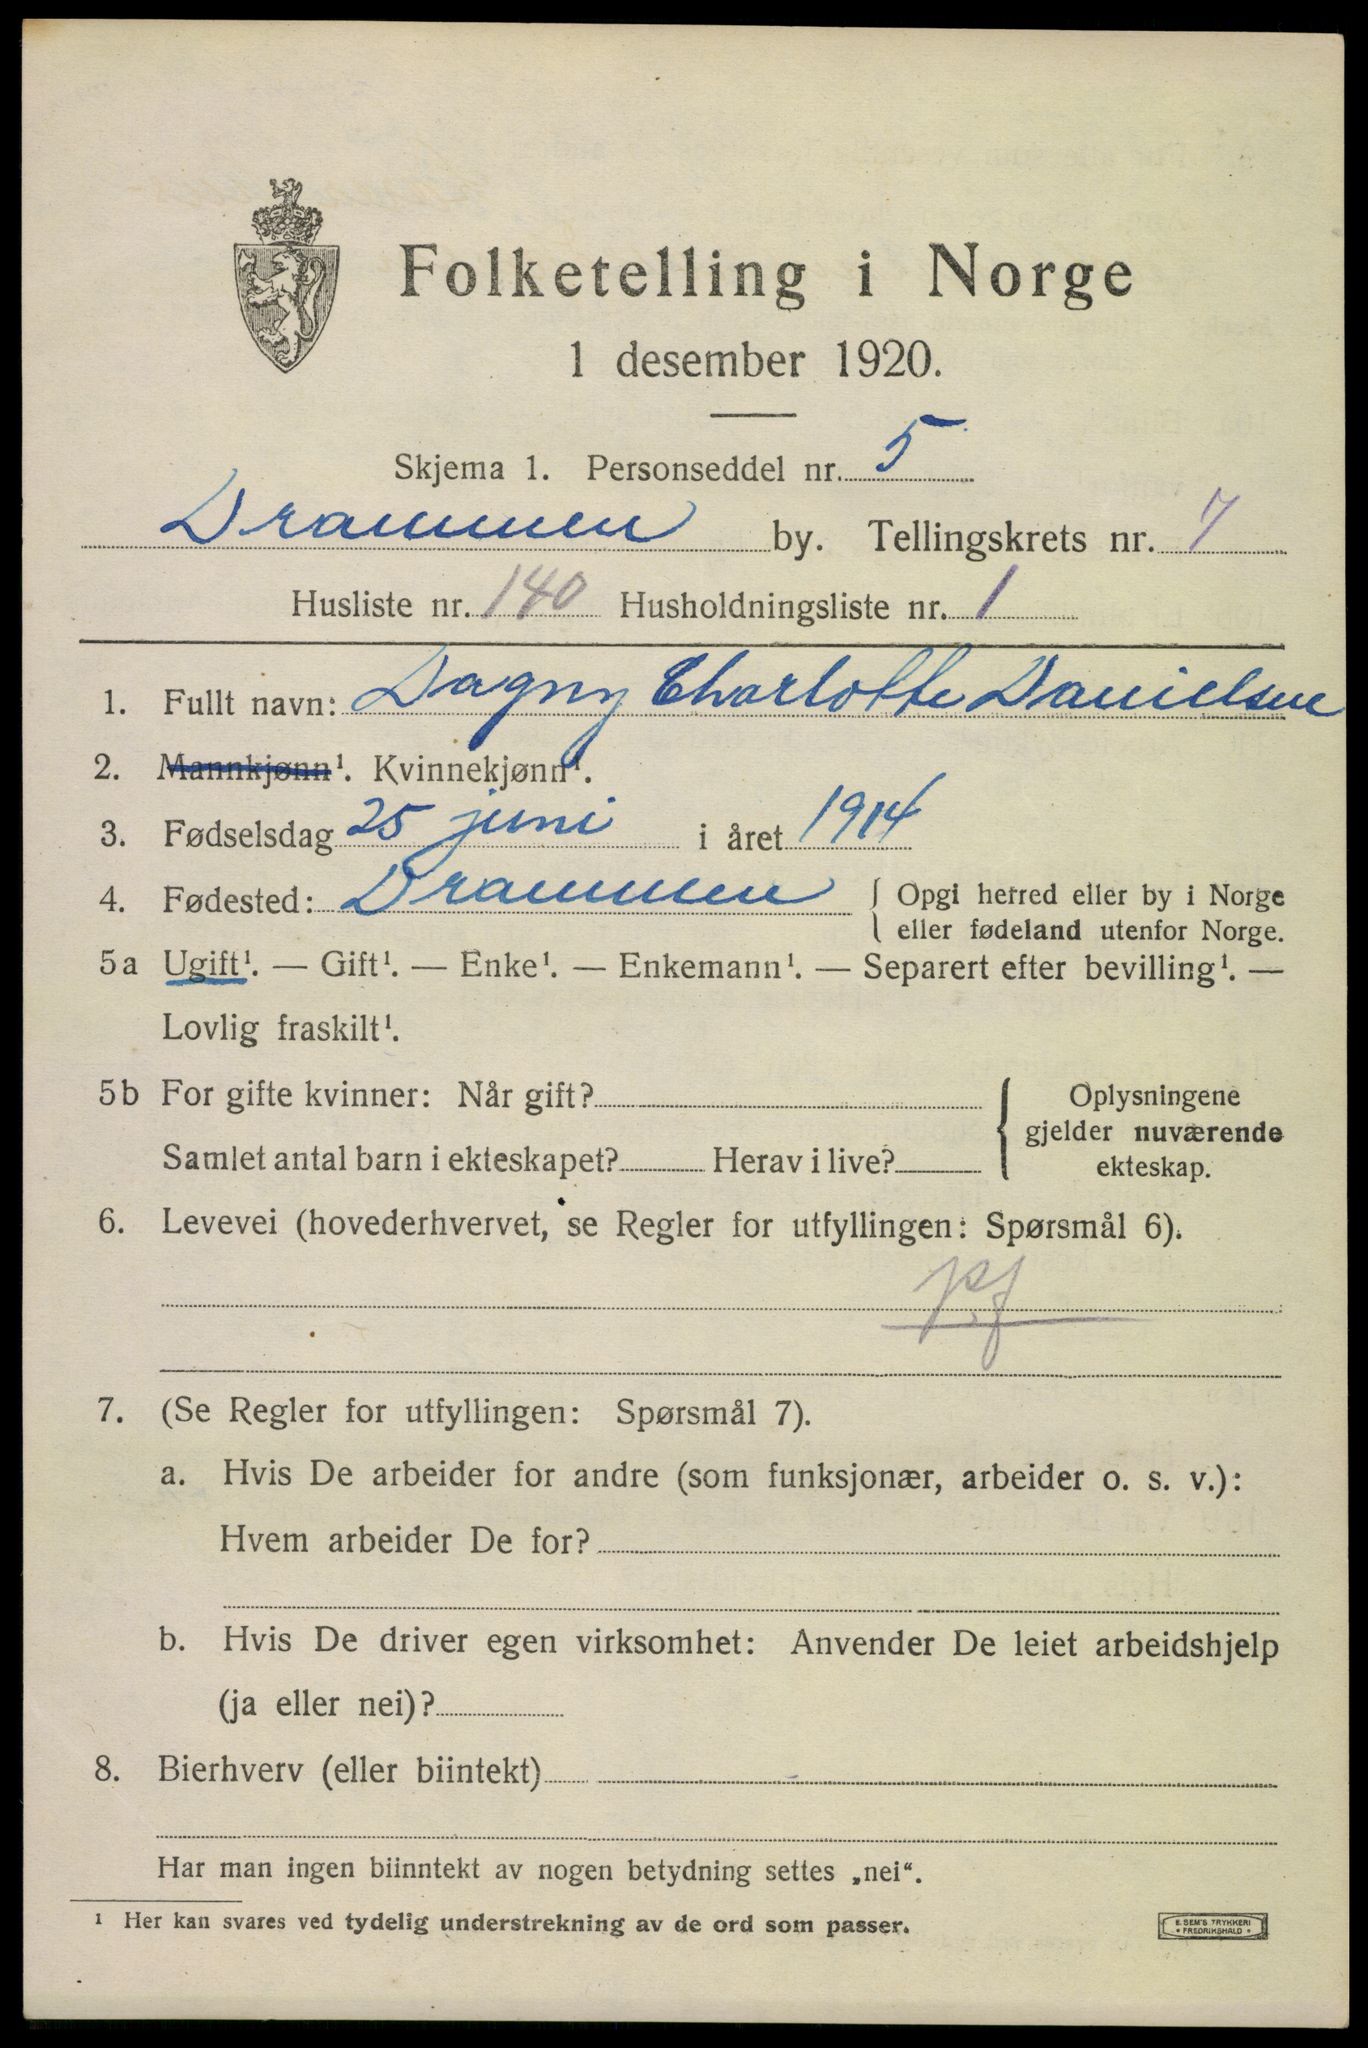 Folketelling i Norge
1 desember 1920.
Skjema 1. Personseddel nr. 5
Drammen by. Tellingskrets nr. 7
Husliste nr. 140 Husholdningsliste nr. 1
1. Fullt navn: Dagny Charlotte Danielsen
2. Mannkjønn¹. Kvinnekjønn¹.
3. Fødselsdag 25 juni i året 1914
4. Fødested: Drammen { Opgi herred eller by i Norge
eller fødeland utenfor Norge.
5a Ugift¹. — Gift¹. — Enke¹. — Enkemann¹. — Separert efter bevilling¹. —
Lovlig fraskilt¹.
5b For gifte kvinner: Når gift? { Oplysningene
gjelder nuværende
Samlet antal barn i ekteskapet? Herav i live? ekteskap.
6. Levevei (hovederhvervet, se Regler for utfyllingen: Spørsmål 6).
p.f
7. (Se Regler for utfyllingen: Spørsmål 7).
a. Hvis De arbeider for andre (som funksjonær, arbeider o. s. v.):
Hvem arbeider De for?
b. Hvis De driver egen virksomhet: Anvender De leiet arbeidshjelp
(ja eller nei)?
8. Bierhverv (eller biintekt)
Har man ingen biinntekt av nogen betydning settes „nei“.
¹ Her kan svares ved tydelig understrekning av de ord som passer.
E. SEM'S TRYKKERI
* FREDRIKSHALD *